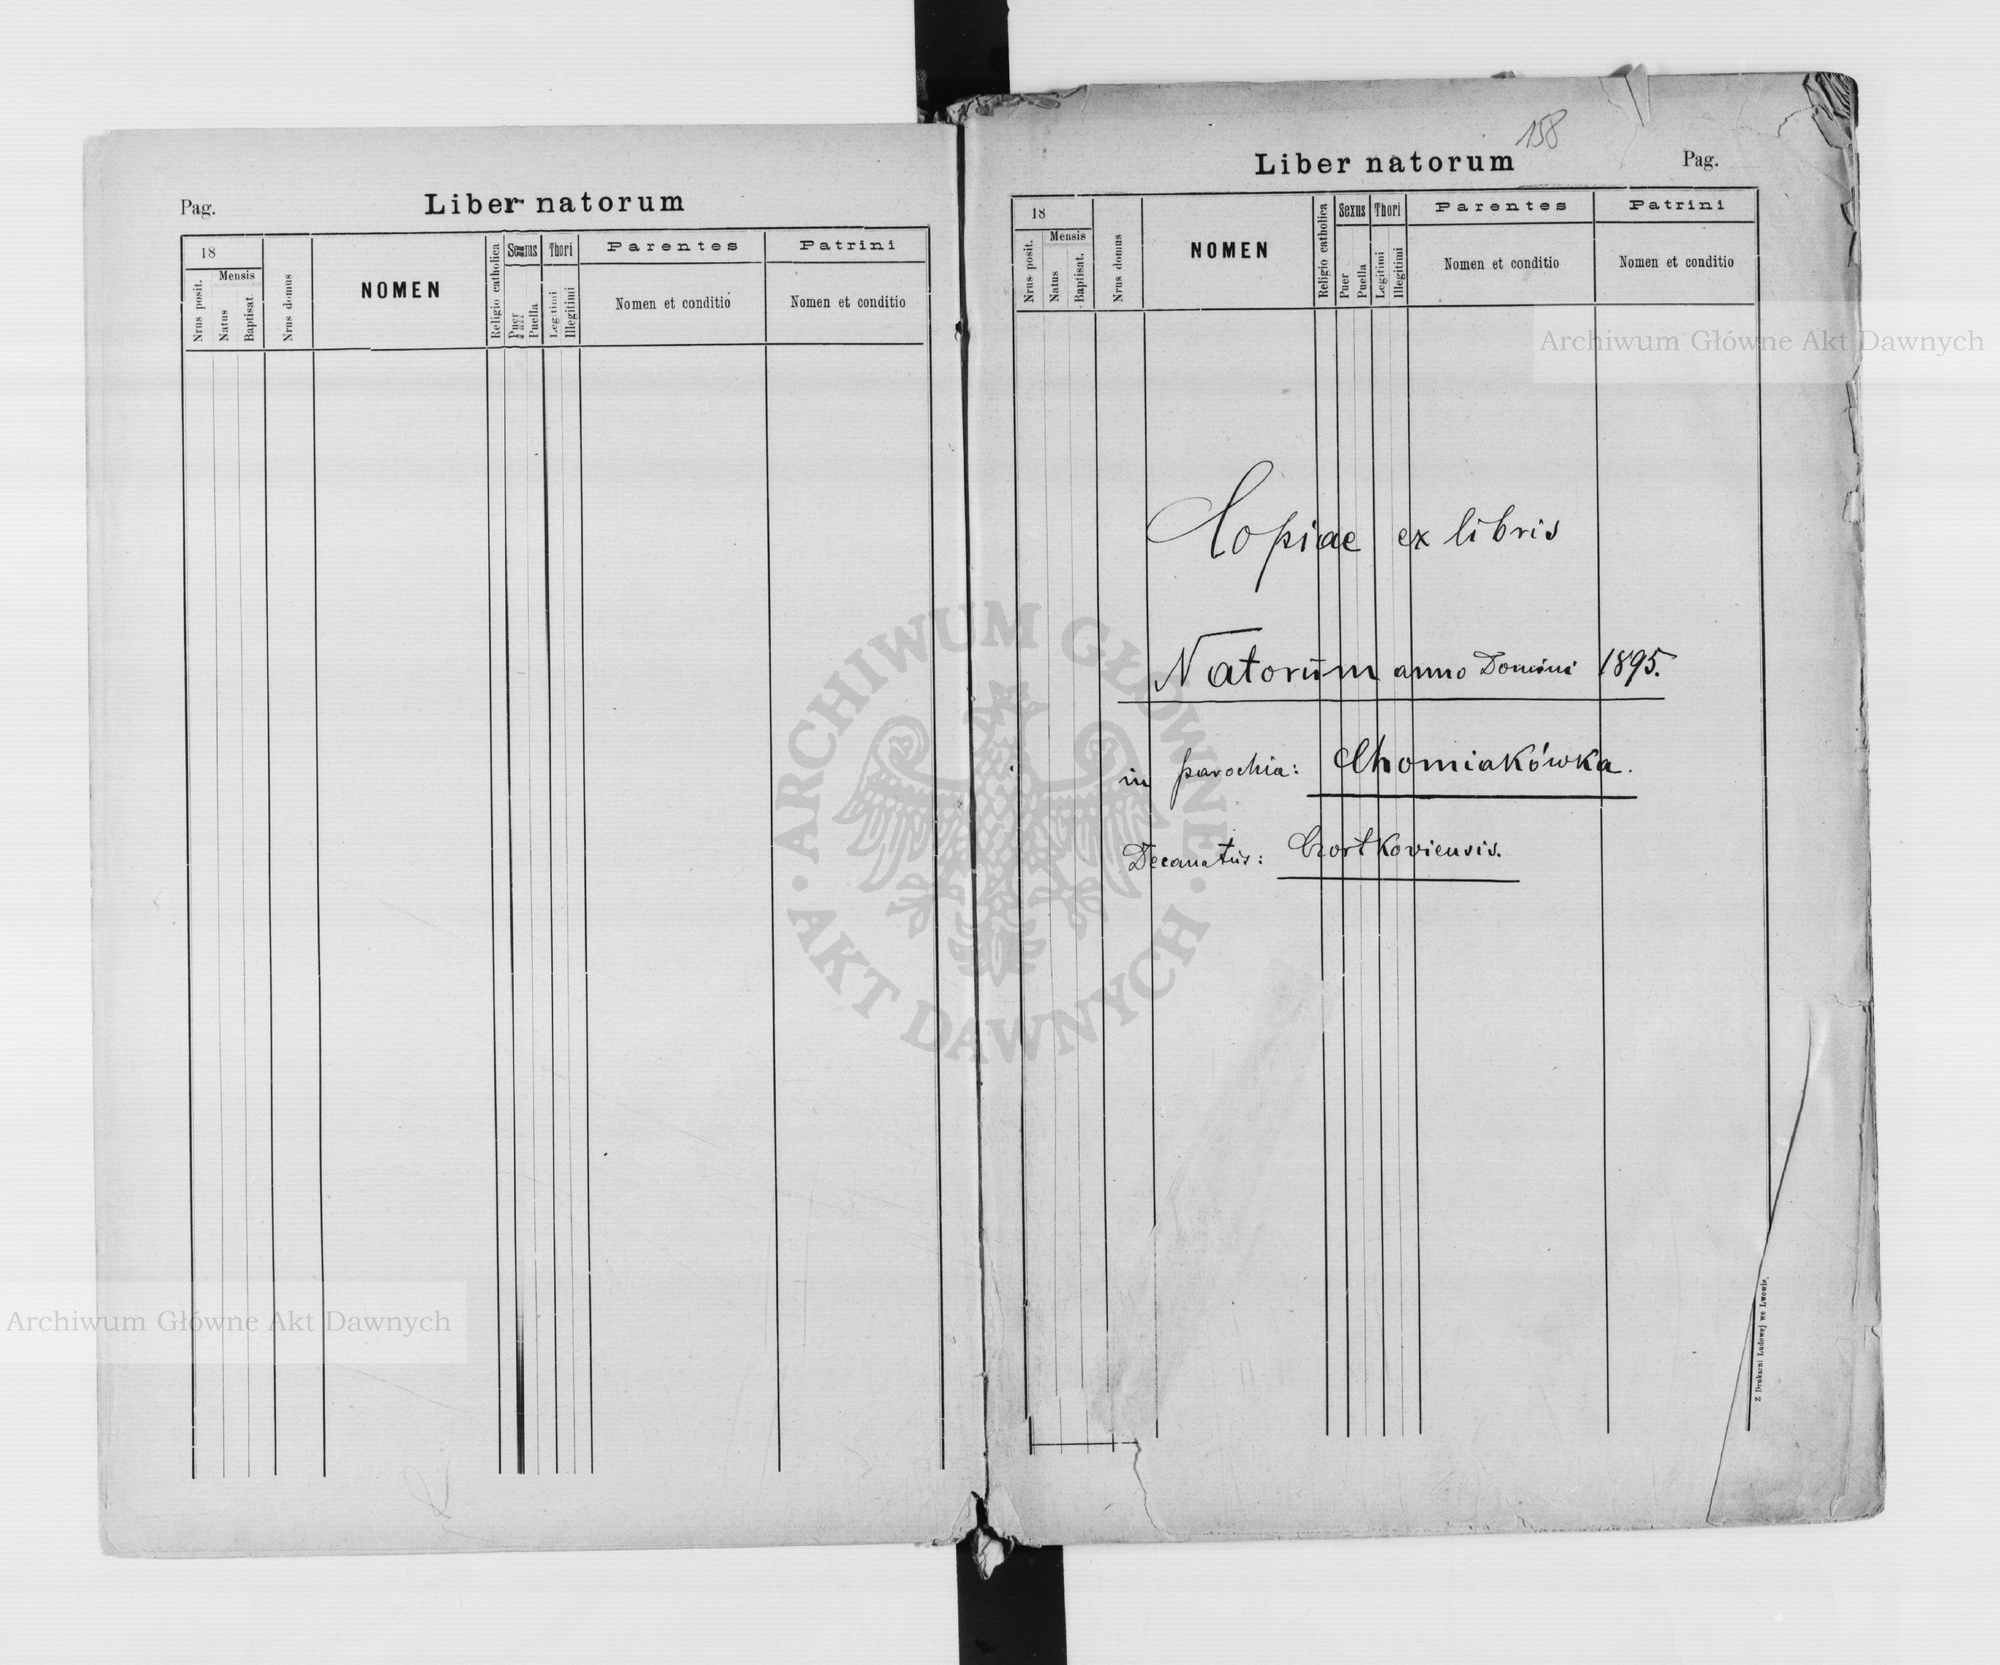 Pag.
Liber natorum
18
Mensis
Nrus posit.
Natus
Baptisat.
Nrus domus
NOMEN
Religio catholica
Sexus
Puer
Puella
Thori
Legitimi
Illegitimi
Parentes
Nomen et conditio
Patrini
Nomen et conditio
158
Liber natorum
Pag.
18
Mensis
Nrus posit.
Natus
Baptisat.
Nrus domus
NOMEN
Religio catholica
Sexus
Puer
Puella
Thori
Legitimi
Illegitimi
Parentes
Nomen et conditio
Patrini
Nomen et conditio
Copiae ex libris
Natorum anno Domini 1895.
in parochia: Chomiakówka.
Decanatus: Czortkoviensis.
Z Drukarni Ludowej we Lwowie.
Archiwum Główne Akt Dawnych
Archiwum Główne Akt Dawnych
ARCHIWUM GŁÓWNE AKT DAWNYCH